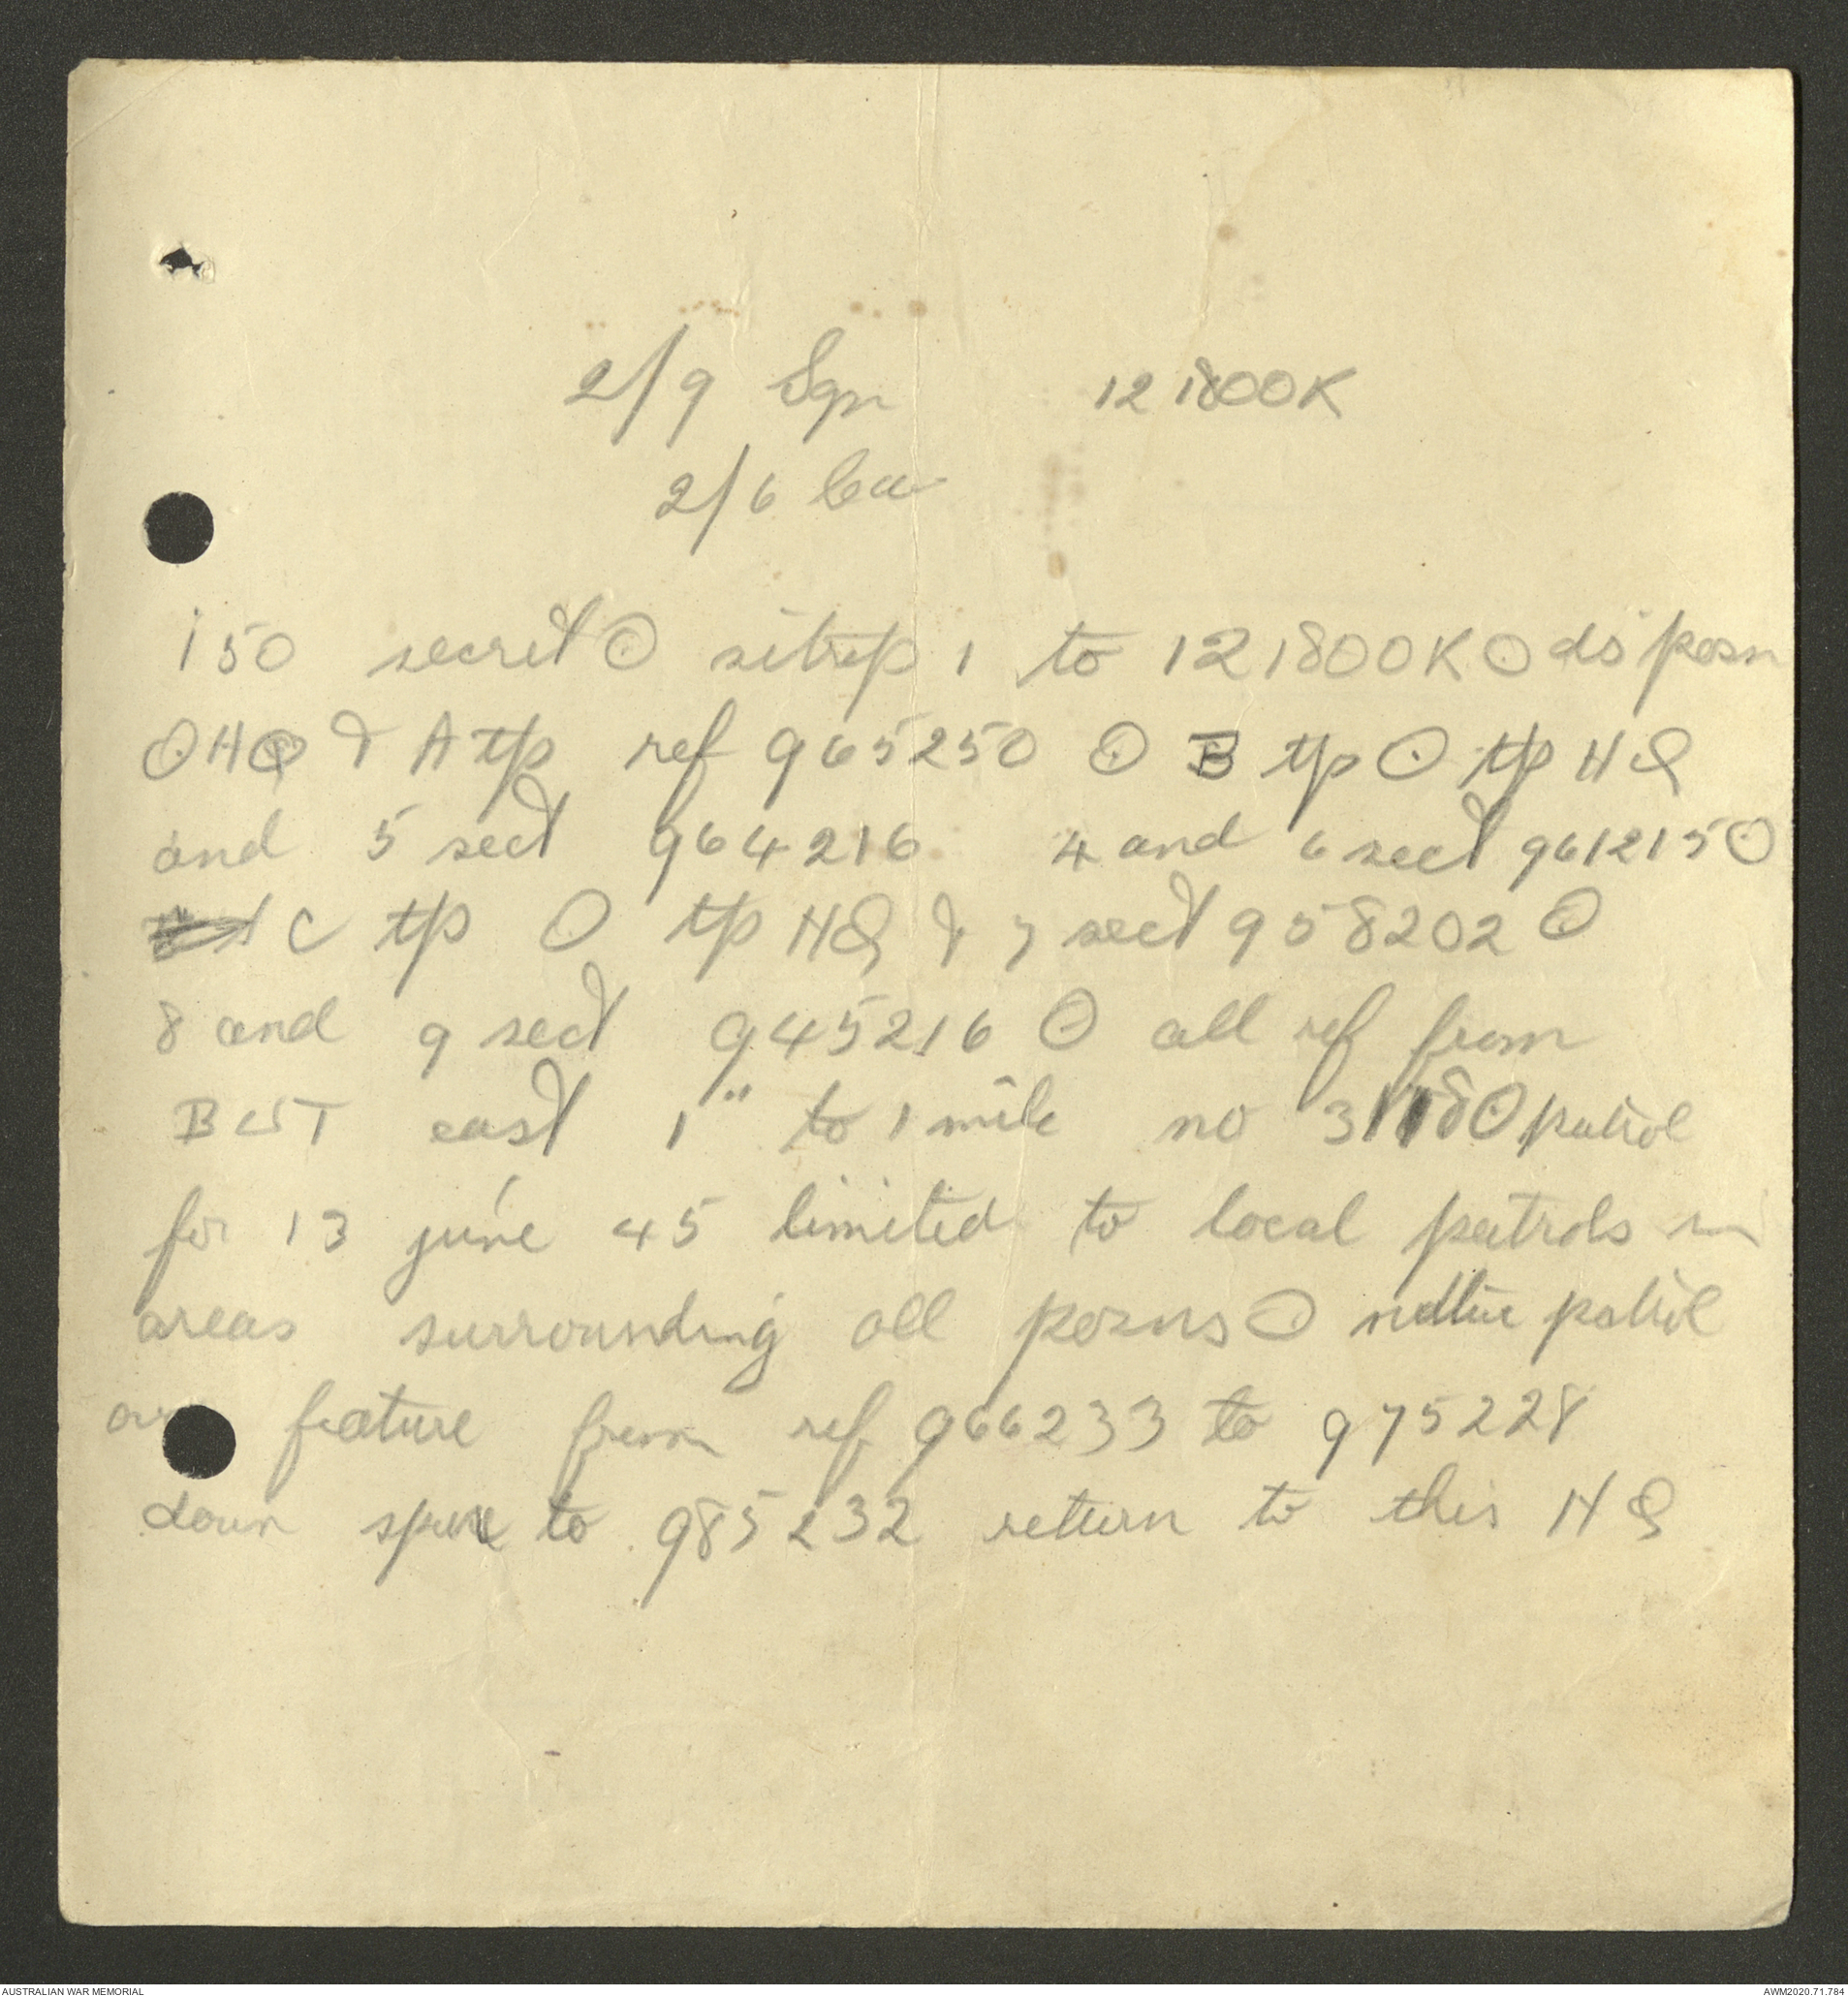 2/9 Sqn 121800K
2/6 Cav
150 secret ⊙ sitrep 1 to 121800K ⊙ dis posn
⊙ HQ & A tp ref 965250 ⊙ B tp ⊙ tp HQ
and 5 sect 964216 4 and 6 sect 961215 ⊙
C tp ⊙ tp HQ & 7 sect 958202 ⊙
8 and 9 sect 945216 ⊙ all ref from
BUT east 1" to 1 mile no 3118 ⊙ patrol
for 13 june 45 limited to local patrols in
areas surrounding all posns ⊙ native patrol
feature from ref 966233 to 975228
down spur to 985232 return to this HQ
AUSTRALIAN WAR MEMORIAL AWM2020.71.784